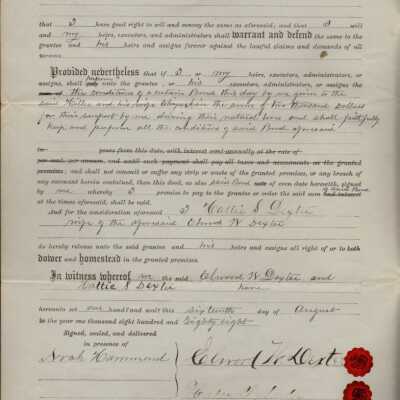 that I have good right to sell and convey the same as aforesaid; and that I will
and my heirs, executors, and administrators shall warrant and defend the same to the
grantee and his heirs and assigns forever against the lawful claims and demands of all
persons.
Provided nevertheless that if I or my heirs, executors, administrators, or
assigns, shall perform unto the grantee, or his executors, administrators, or assigns the
the conditions of a certain Bond this day by me given to the
said and his wife in the sum of Five thousand dollars
for their support by me during their natural lives and shall faithfully
keep and perform all the conditions of said Bond aforesaid
years from this date, with interest semi-annually at the rate of
per cent. per annum, and until such payment shall pay all taxes and assessments on the granted
premises; and shall not commit or suffer any strip or waste of the granted premises, or any breach of
any covenant herein contained, then this deed, as also said Bond of even date herewith, signed
by me whereby I promise to pay to the grantee or order the said
at the times aforesaid, shall be void.
And for the consideration aforesaid I Hattie S Dexter
wife of the aforesaid Elwood W Dexter
do hereby release unto the said grantee and his heirs and assigns all right of or to both
dower and homestead in the granted premises.
In witness whereof we the said Elwood W Dexter and
Hattie S Dexter have
hereunto set our hand and seal this sixteenth day of August
in the year one thousand eight hundred and Eighty eight
Signed, sealed, and delivered
in presence of
Noah Hammond
Elwood W Dexter